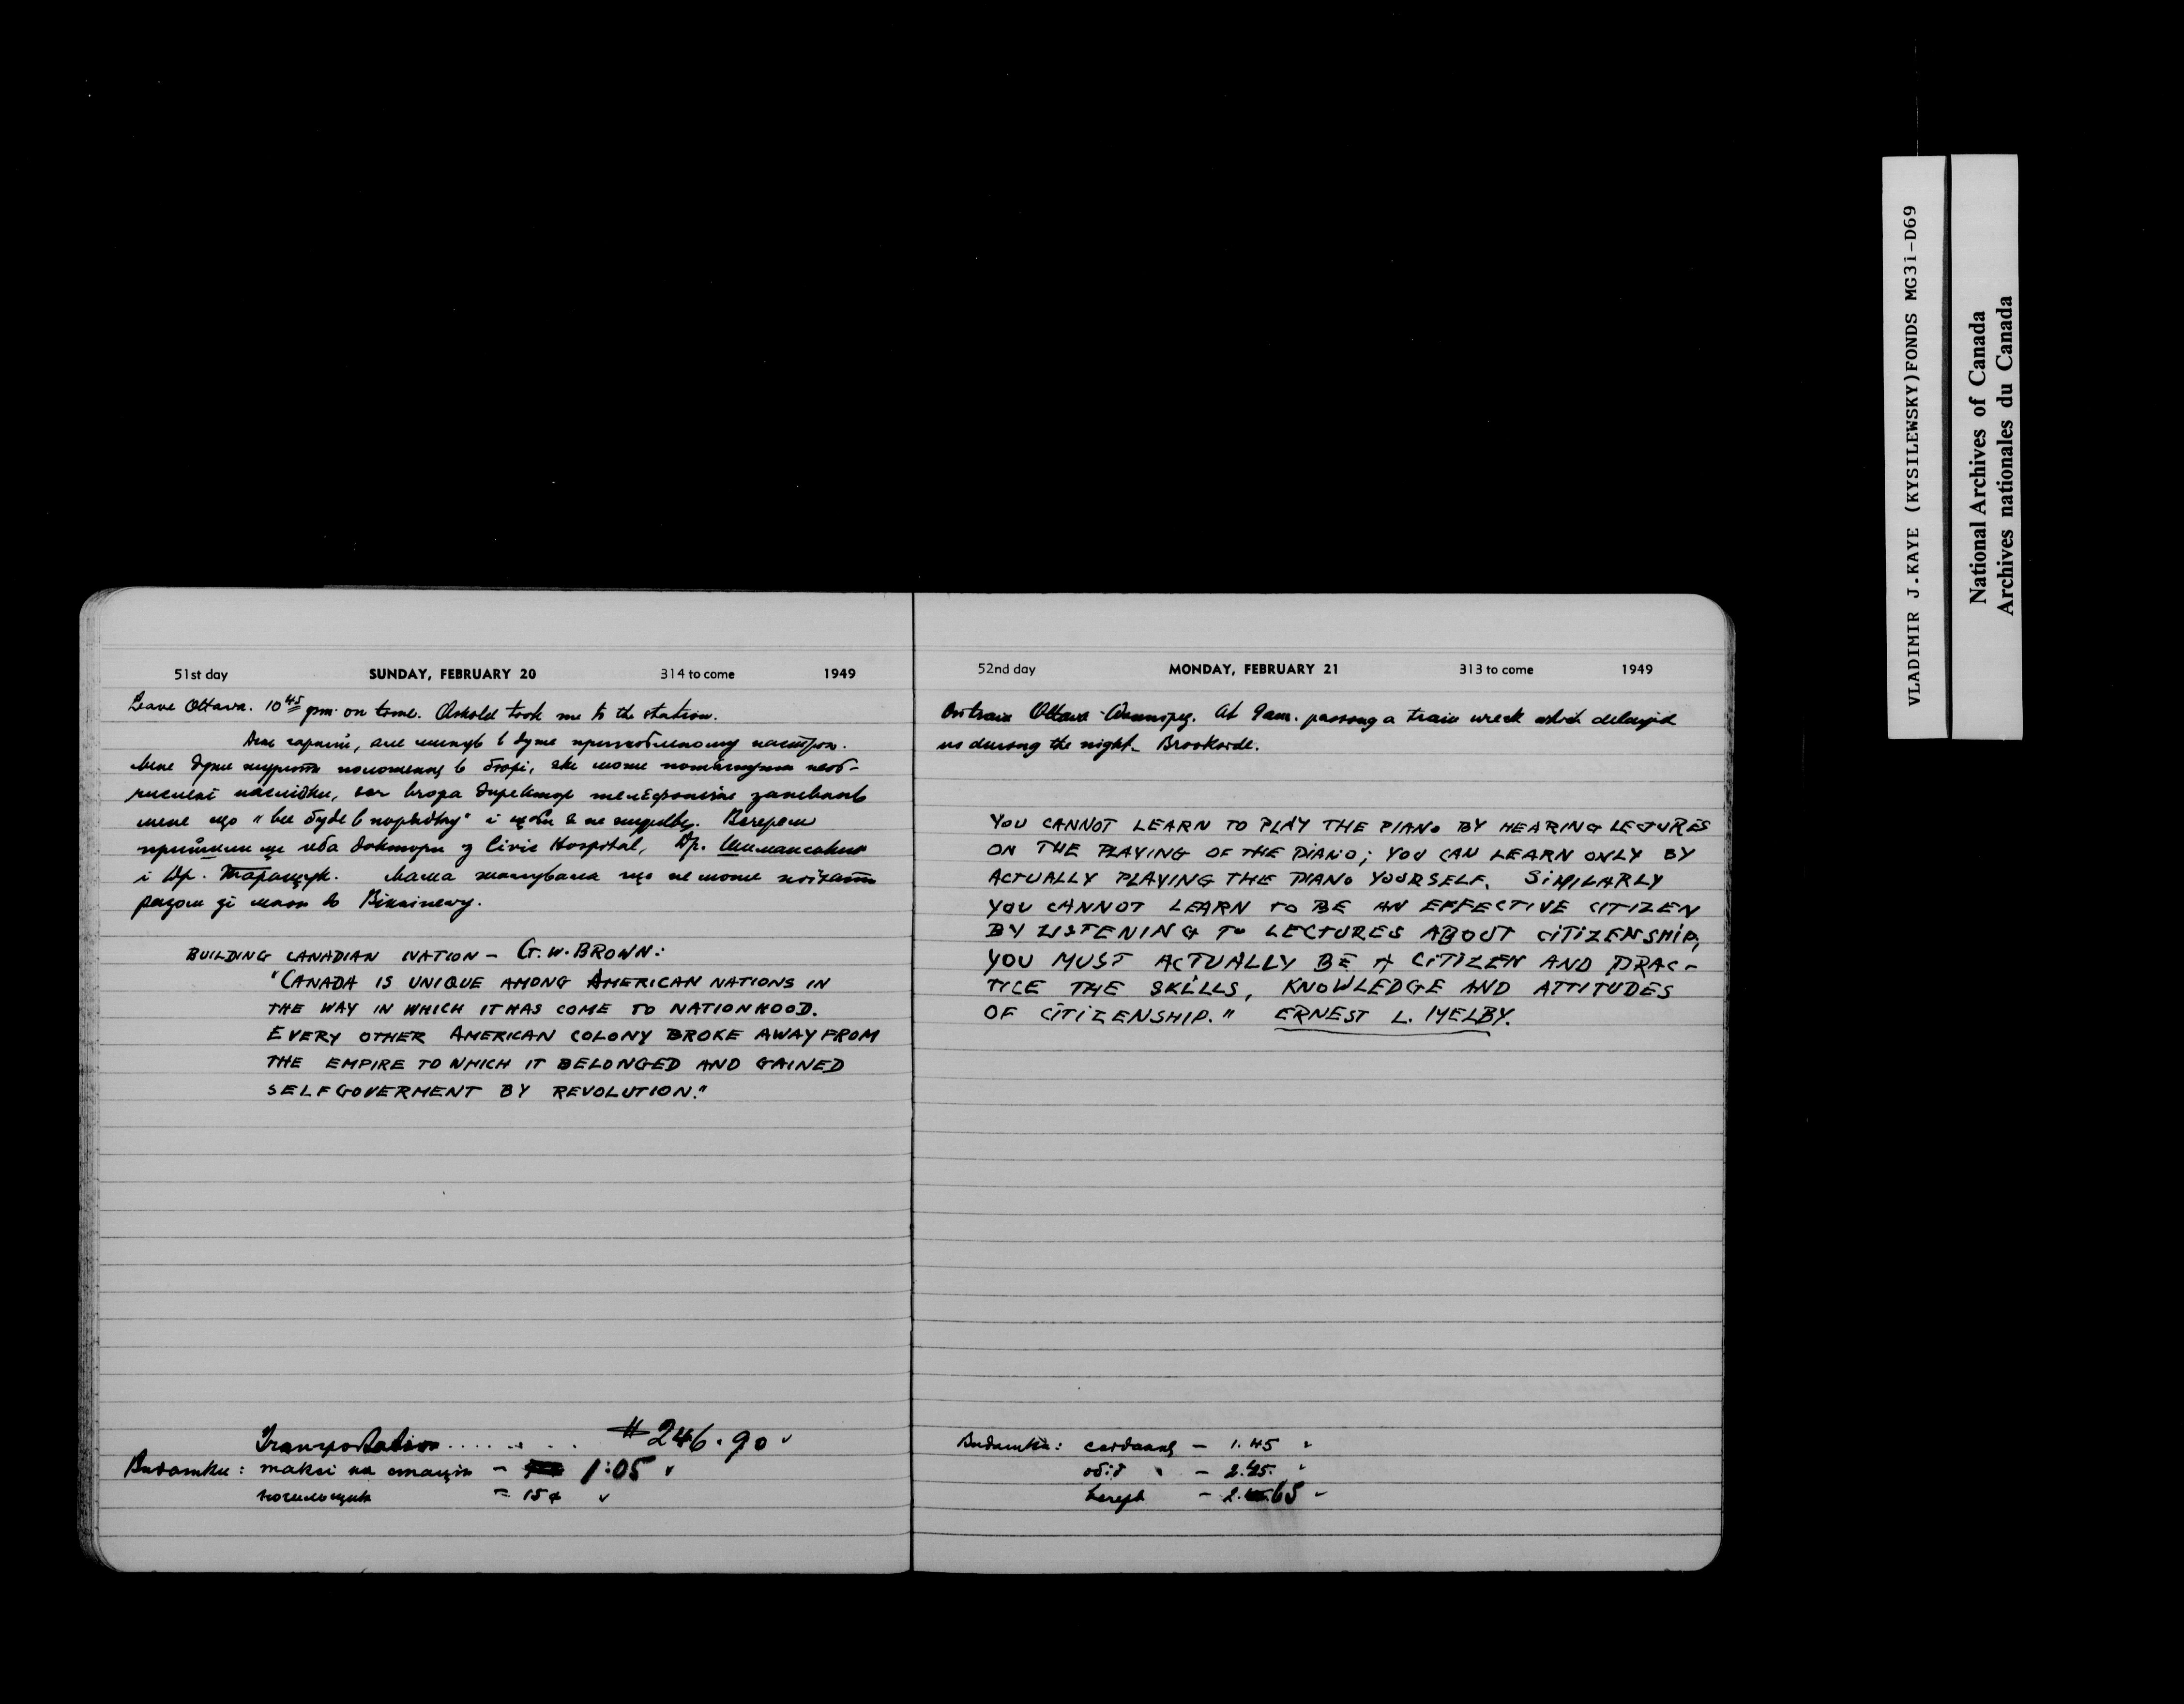 51st day SUNDAY, FEBRUARY 20 314 to come 1949
Leave Ottawa. 10⁴⁵ pm. on time. Askold took me to the station.
День гарний, але минув в дуже пригнобленому настрою.
Мене дуже журить положення в бюрі, яке може потягнути необ-
числені наслідки, хоч вчора директор телефонічно запевняв
мене що "все буде в порядку" і щоби я не журився. Вечером
прийшли ще оба доктори з Civic Hospital, Др.
і Др. Таращук. Мама жалувала що не може поїхати
разом зі мною до Вінніпегу.
BUILDING CANADIAN NATION – G.W. BROWN:
"CANADA IS UNIQUE AMONG AMERICAN NATIONS IN
THE WAY IN WHICH IT HAS COME TO NATIONHOOD.
EVERY OTHER AMERICAN COLONY BROKE AWAY FROM
THE EMPIRE TO WHICH IT BELONGED AND GAINED
SELFGOVERMENT BY REVOLUTION."
Transportation........ $246.90 ✓
Видатки: таксі на стацію – 1:05 ✓
носильщик = 15¢ ✓
52nd day MONDAY, FEBRUARY 21 313 to come 1949
On train Ottawa-Winnipeg. At 9 am. passing a train wreck which delayed
us during the night.
YOU CANNOT LEARN TO PLAY THE PIANO BY HEARING LECTURES
ON THE PLAYING OF THE PIANO; YOU CAN LEARN ONLY BY
ACTUALLY PLAYING THE PIANO YOURSELF. SIMILARLY
YOU CANNOT LEARN TO BE AN EFFECTIVE CITIZEN
BY LISTENING TO LECTURES ABOUT CITIZENSHIP,
YOU MUST ACTUALLY BE A CITIZEN AND PRAC-
TICE THE SKILLS, KNOWLEDGE AND ATTITUDES
OF CITIZENSHIP." ERNEST L. MELBY.
Видатки: сніданнє – 1.45 ✓
обід – 2.25. ✓
вечеря – 2.65 ✓
VLADIMIR J.KAYE (KYSILEWSKY)FONDS MG31-D69
National Archives of Canada
Archives nationales du Canada